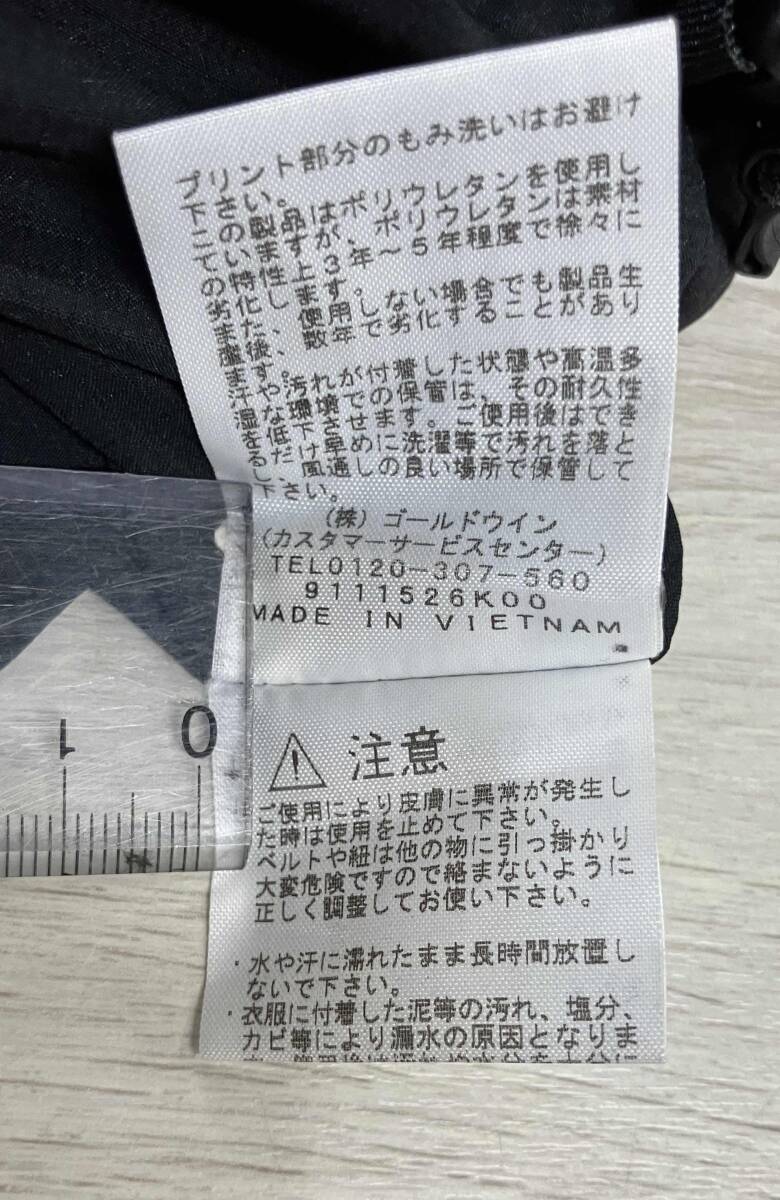 プリント部分のもみ洗いはお避け
下さい。
この製品はポリウレタンを使用し
ていますが、ポリウレタンは素材
の特性上、3年～5年程度で徐々に
劣化します。
また、使用しない場合でも製品生
産後、数年で劣化することがあり
ます。
汗や汚れが付着した状態や高温多
湿な環境での保管は、その耐久性
を低下させます。ご使用後はでき
るだけ早めに洗濯等で汚れを落と
し、風通しの良い場所で保管して
下さい。
(株) ゴールドウイン
(カスタマーサービスセンター)
TEL0120-307-560
9111526K00
MADE IN VIETNAM
1 0
注意
ご使用により皮膚に異常が発生し
た時は使用を止めて下さい。
ベルトや紐は他の物に引っ掛かり
大変危険ですので絡まないように
正しく調整してお使い下さい。
・水や汗に濡れたまま長時間放置し
ないで下さい。
・衣服に付着した泥等の汚れ、塩分、
カビ等により漏水の原因となりま